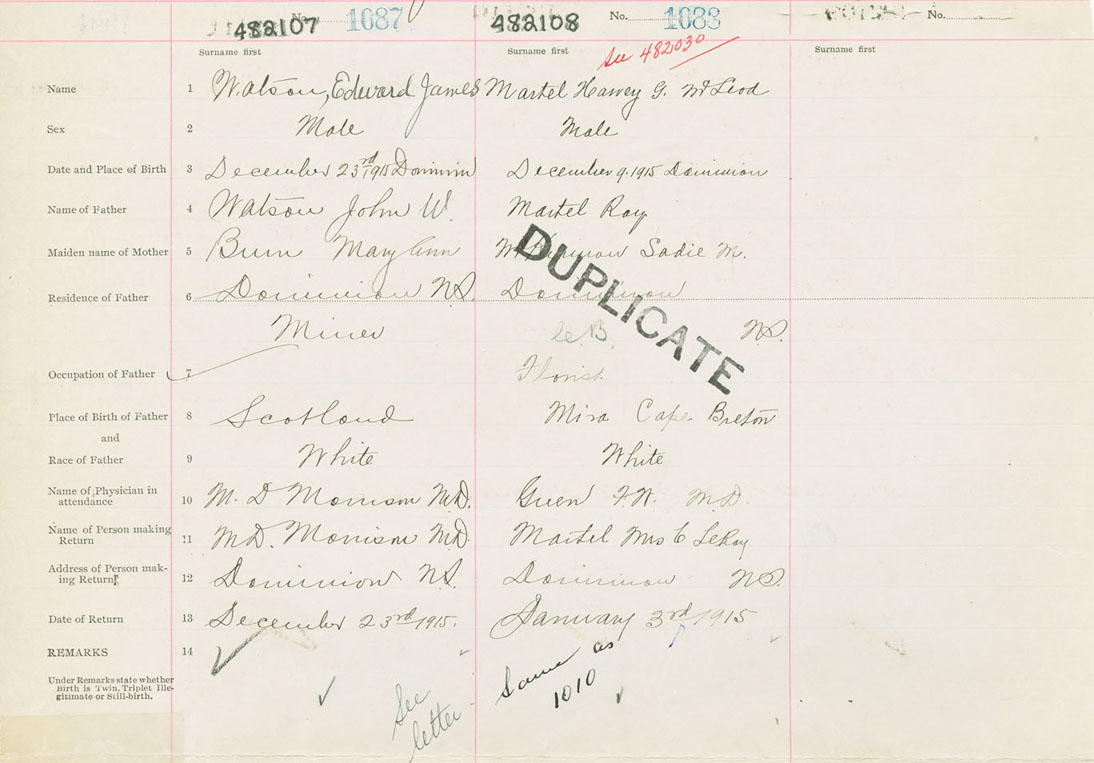 482107 No. 1087 482108 No. 1088 No.
Surname first Surname first Surname first
See 482030
Name 1 Watson, Edward James Martel Harvey G. McLeod
Sex 2 Male Male
Date and Place of Birth 3 December 23rd 1915 Dominion December 9. 1915 Dominion
Name of Father 4 Watson John W. Martel Roy
Maiden name of Mother 5 Mary Ann Sadie M.
DUPLICATE
Residence of Father 6 Dominion N.S. Dominion
Miner C.B. N.S.
Occupation of Father 7 Florist
Place of Birth of Father 8 Scotland Mira Cape Breton
and
Race of Father 9 White White
Name of Physician in
attendance 10 M. D Morrison M.D. Green F.W. M.D.
Name of Person making
Return 11 M.D. Morrison M.D. Martel Mrs C LeRoy
Address of Person mak-
ing Return 12 Dominion N.S. Dominion N.S.
Date of Return 13 December 23rd 1915. January 3rd 1915
REMARKS 14
Under Remarks state whether
Birth is Twin. Triplet Ille-
gitimate or Still-birth.
See
letter
Same as
1010